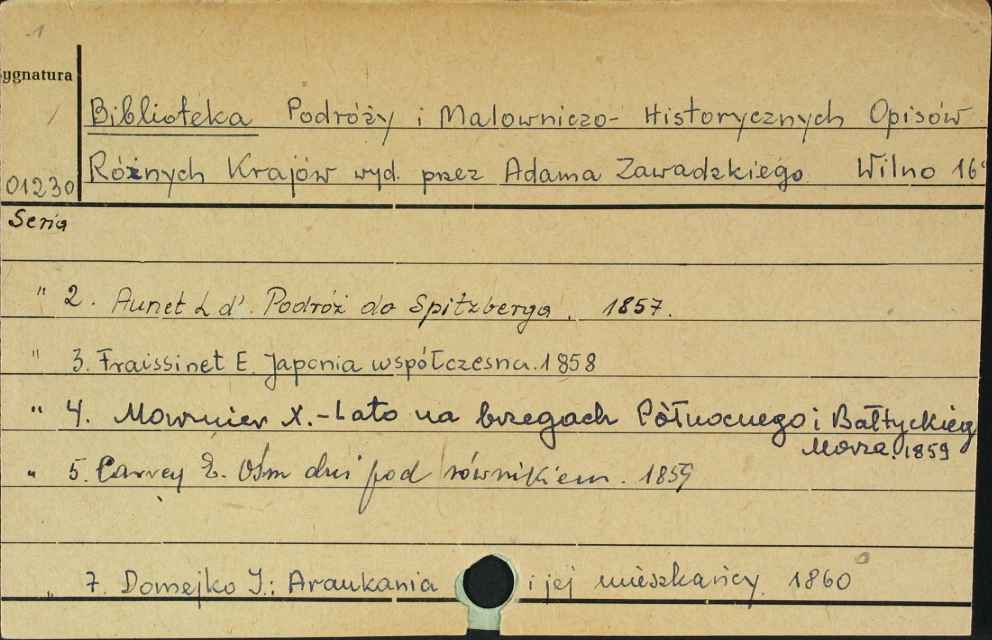 1
ygnatura
Biblioteka Podróży i Malowniczo- Historycznych Opisów
01230 Różnych Krajów wyd. przez Adama Zawadzkiego. Wilno 16
Seria
" 2. Aunet L d'. Podróż do Spitzberga. 1857.
" 3. Fraissinet E. Japonia współczesna. 1858
" 4. X.-Lato na brzegach Północnego i Bałtyckieg
Morza. 1859
" 5. Carrey E. Ośm dni pod równikiem. 1859
" 7. Domejko I.: Araukania i jej mieszkańcy. 1860